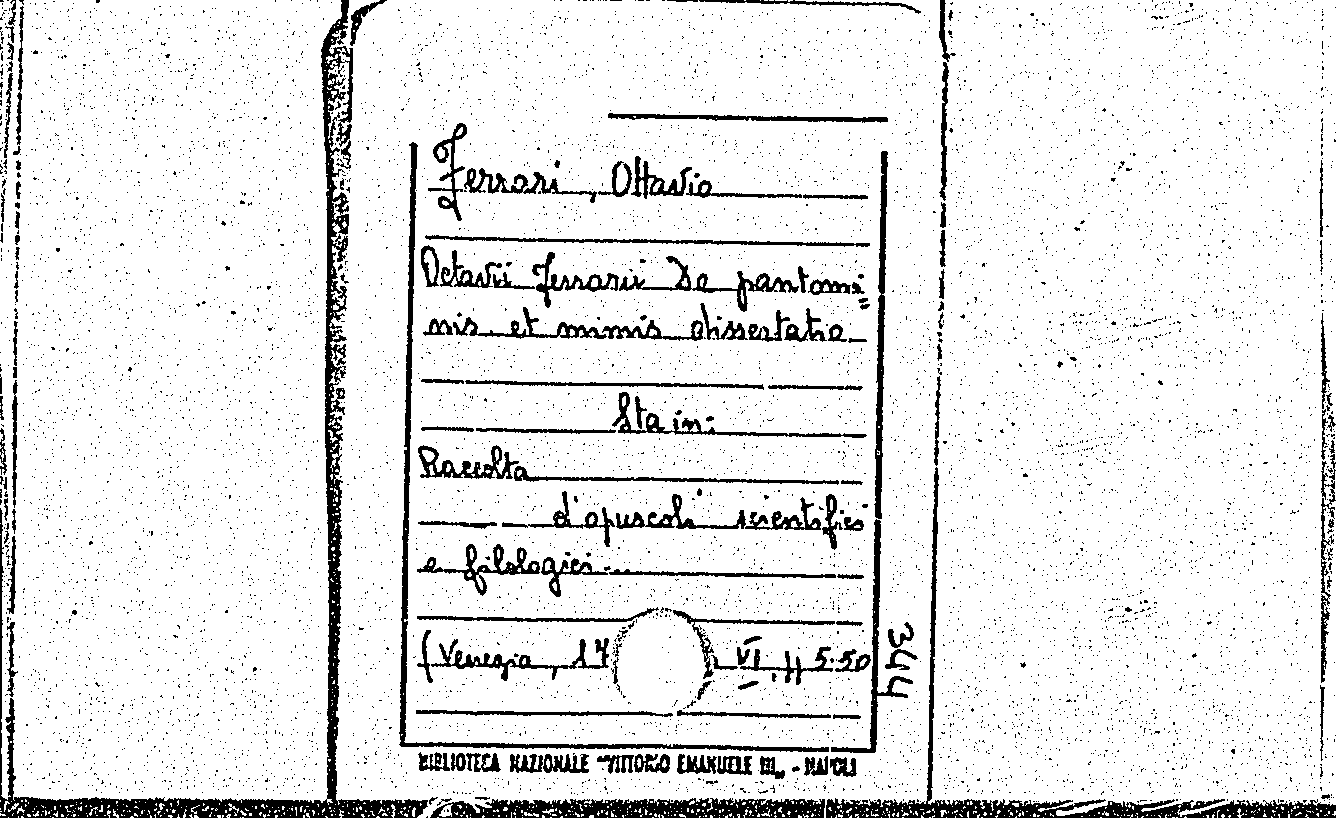 Ferrari, Ottavio
Octavii Ferrarii De pantomi=
mis et mimis dissertatio
Sta in:
Raccolta
d'opuscoli scientifici
e filologici...
(Venezia, 17
VI, 5.50
344
BIBLIOTECA NAZIONALE "VITTORIO EMANUELE III" - NAPOLI